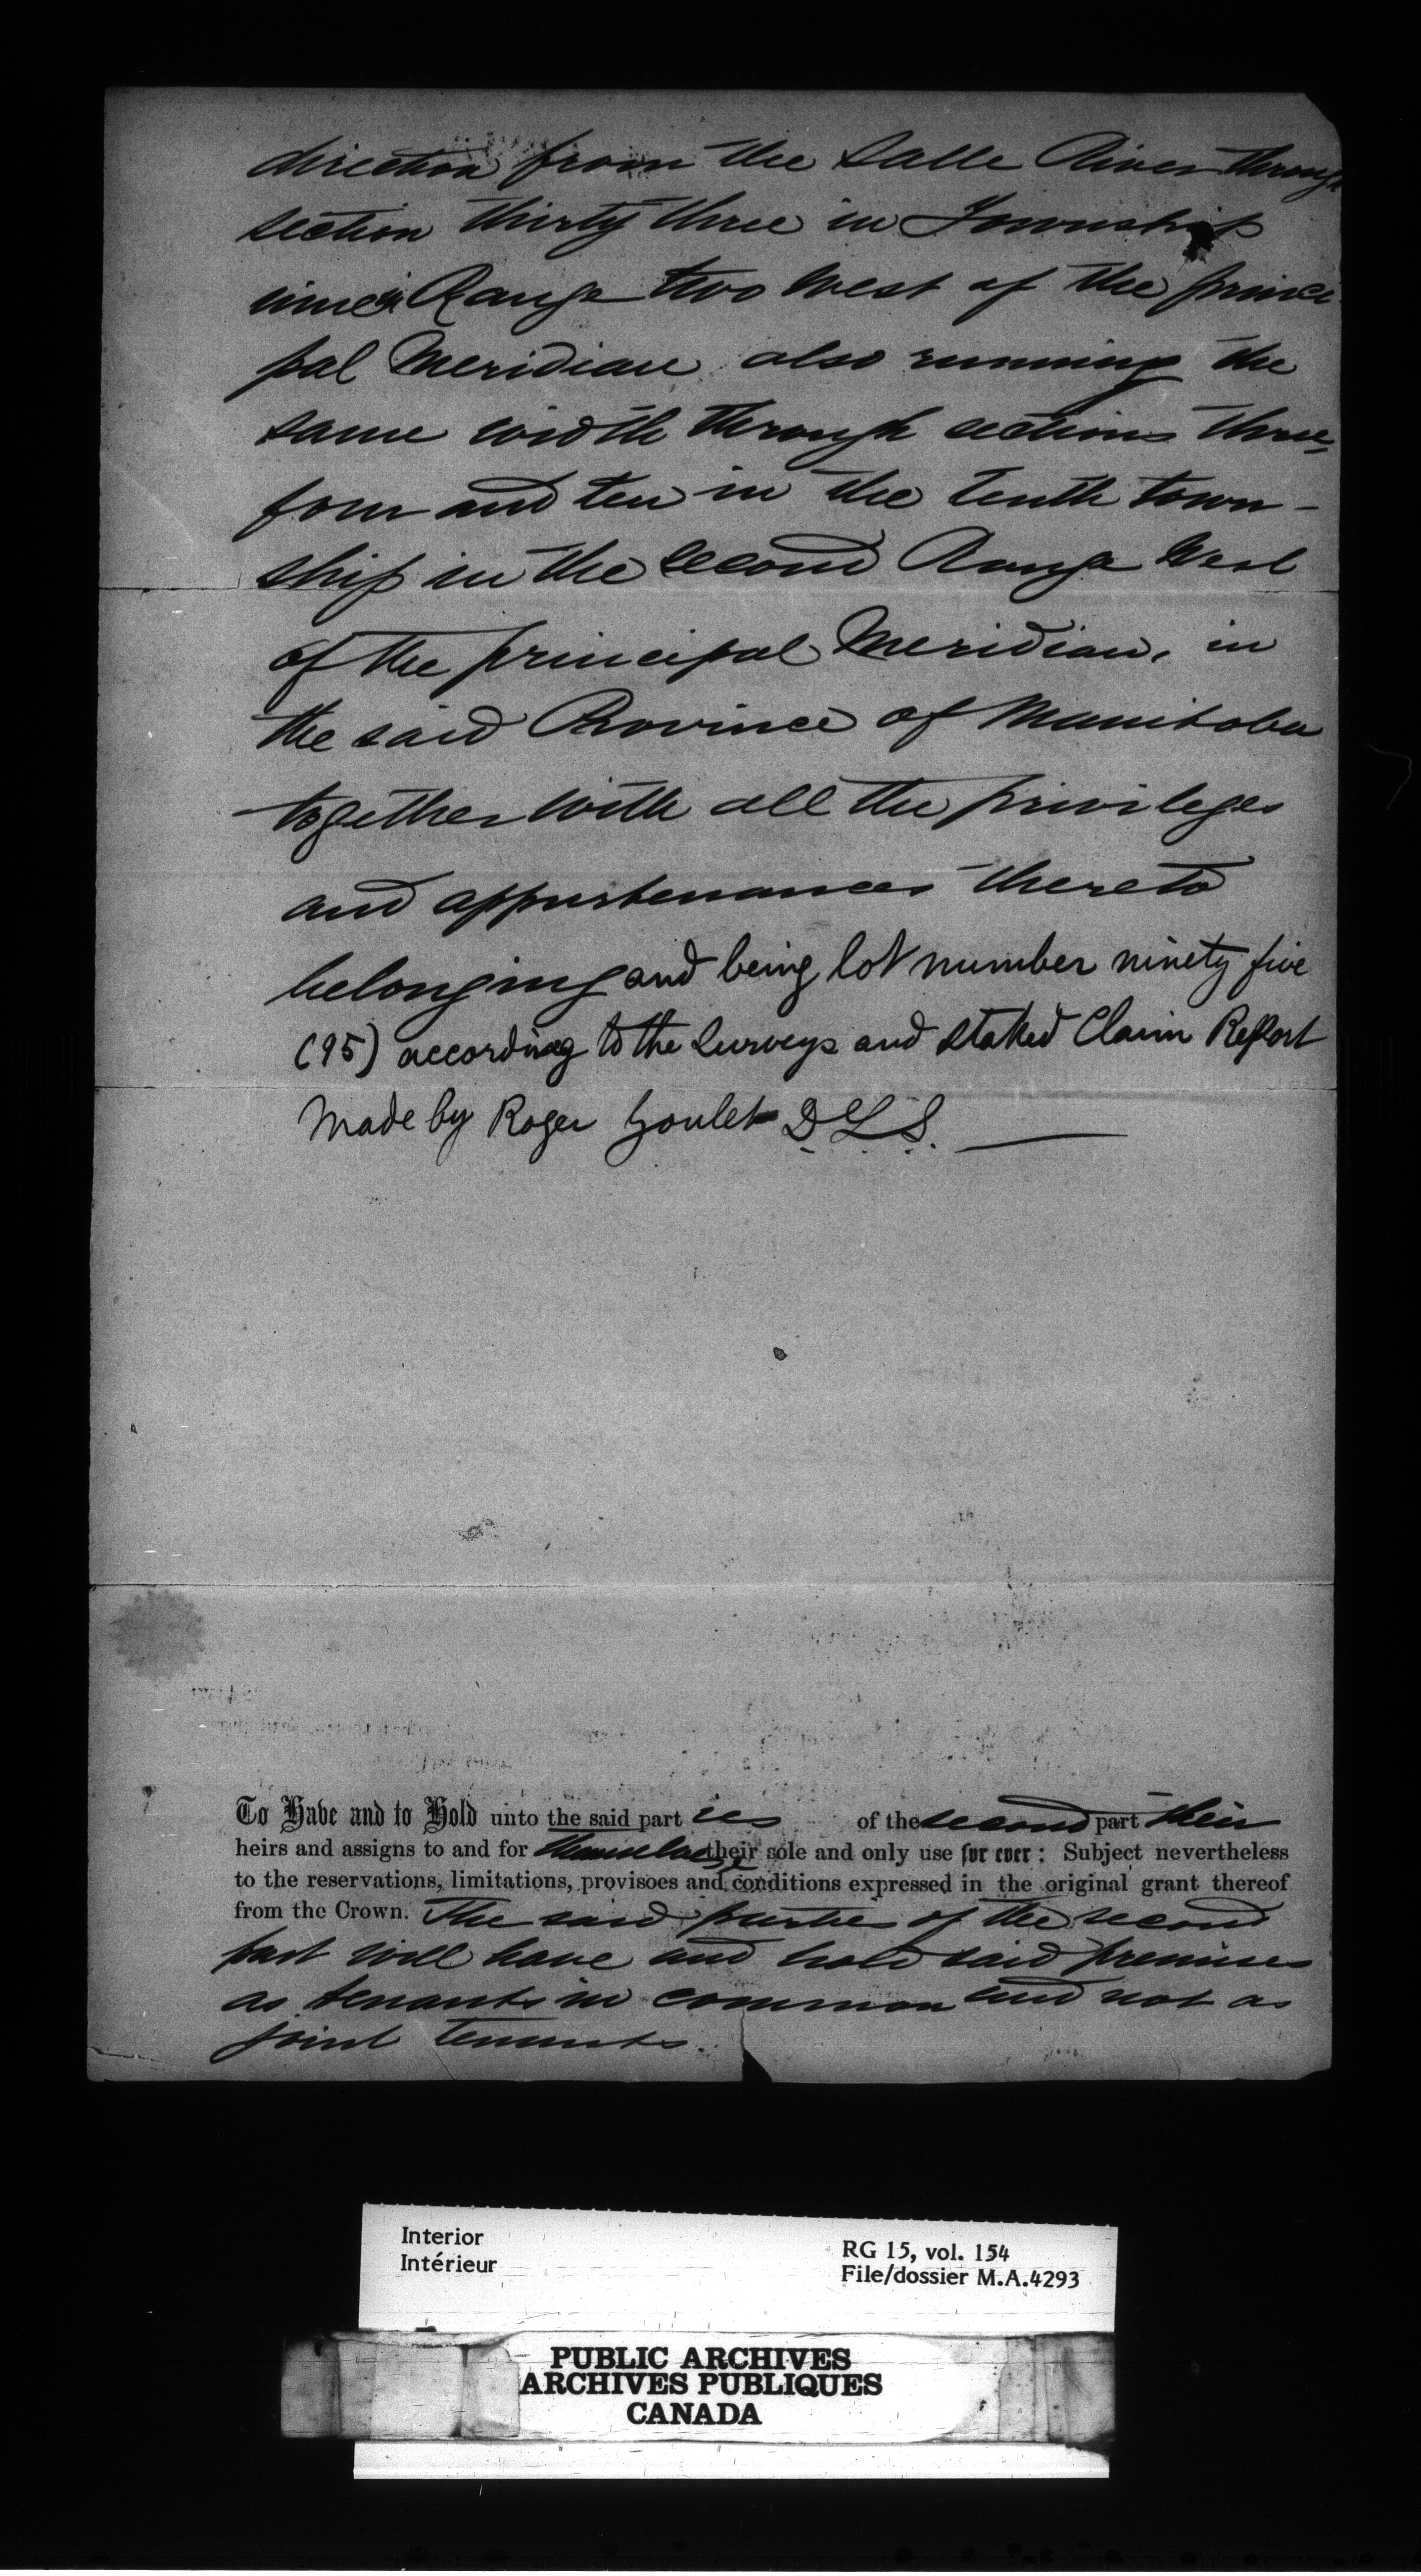 direction from the Salle River through
section thirty three in Township
nine in Range two West of the princi
pal Meridian also running the
same width through sections three,
four and ten in the tenth town-
ship in the second Range West
of the principal Meridian, in
the said Province of Manitoba
together with all the privileges
and appurtenances thereto
belonging and being lot number ninety five
(95) according to the Surveys and Staked Claim Report
Made by Roger Goulet D.L.S.
To Have and to Hold unto the said part ies of the second part their
heirs and assigns to and for themselves their sole and only use for ever: Subject nevertheless
to the reservations, limitations, provisoes and conditions expressed in the original grant thereof
from the Crown. The said parties of the second
part will have and hold said premises
as tenants in common and not as
joint tenants.
Interior
Intérieur
RG 15, vol. 154
File/dossier M.A.4293
PUBLIC ARCHIVES
ARCHIVES PUBLIQUES
CANADA